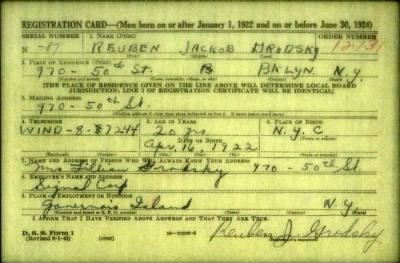 REGISTRATION CARD—(Men born on or after January 1, 1922 and on or before June 30, 1924)
SERIAL NUMBER 1. NAME (Print) ORDER NUMBER
N-87 REUBEN JACKOB GRODSKY
2. PLACE OF RESIDENCE (Print)
970-50th St. BKLYN. N.Y.
[THE PLACE OF RESIDENCE GIVEN ON THE LINE ABOVE WILL DETERMINE LOCAL BOARD
JURISDICTION; LINE 2 OF REGISTRATION CERTIFICATE WILL BE IDENTICAL]
3. MAILING ADDRESS
970-50th St.
4. TELEPHONE 5. AGE IN YEARS 6. PLACE OF BIRTH
WIND-8-8724 20 yrs. N.Y.C
DATE OF BIRTH
Apr. 16, 1922
7. NAME AND ADDRESS OF PERSON WHO WILL ALWAYS KNOW YOUR ADDRESS
Mrs Lillian Grodsky 970-50th St.
8. EMPLOYER'S NAME AND ADDRESS
Signal Corp
9. PLACE OF EMPLOYMENT OR BUSINESS
Governors Island N.Y.
I AFFIRM THAT I HAVE VERIFIED ABOVE ANSWERS AND THAT THEY ARE TRUE.
D. S. S. Form 1
(Revised 6-1-42) (over)
Reuben J. Grodsky